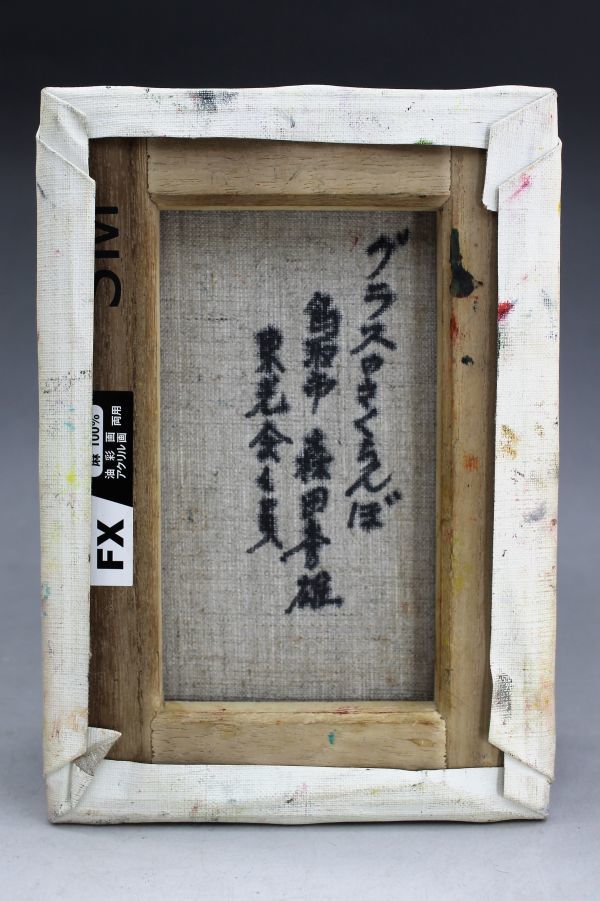 グラスのさくらんぼ
鳥取市 森田青雄
東光会会員
SM
麻 100%
油彩画 両用
アクリル画
FX